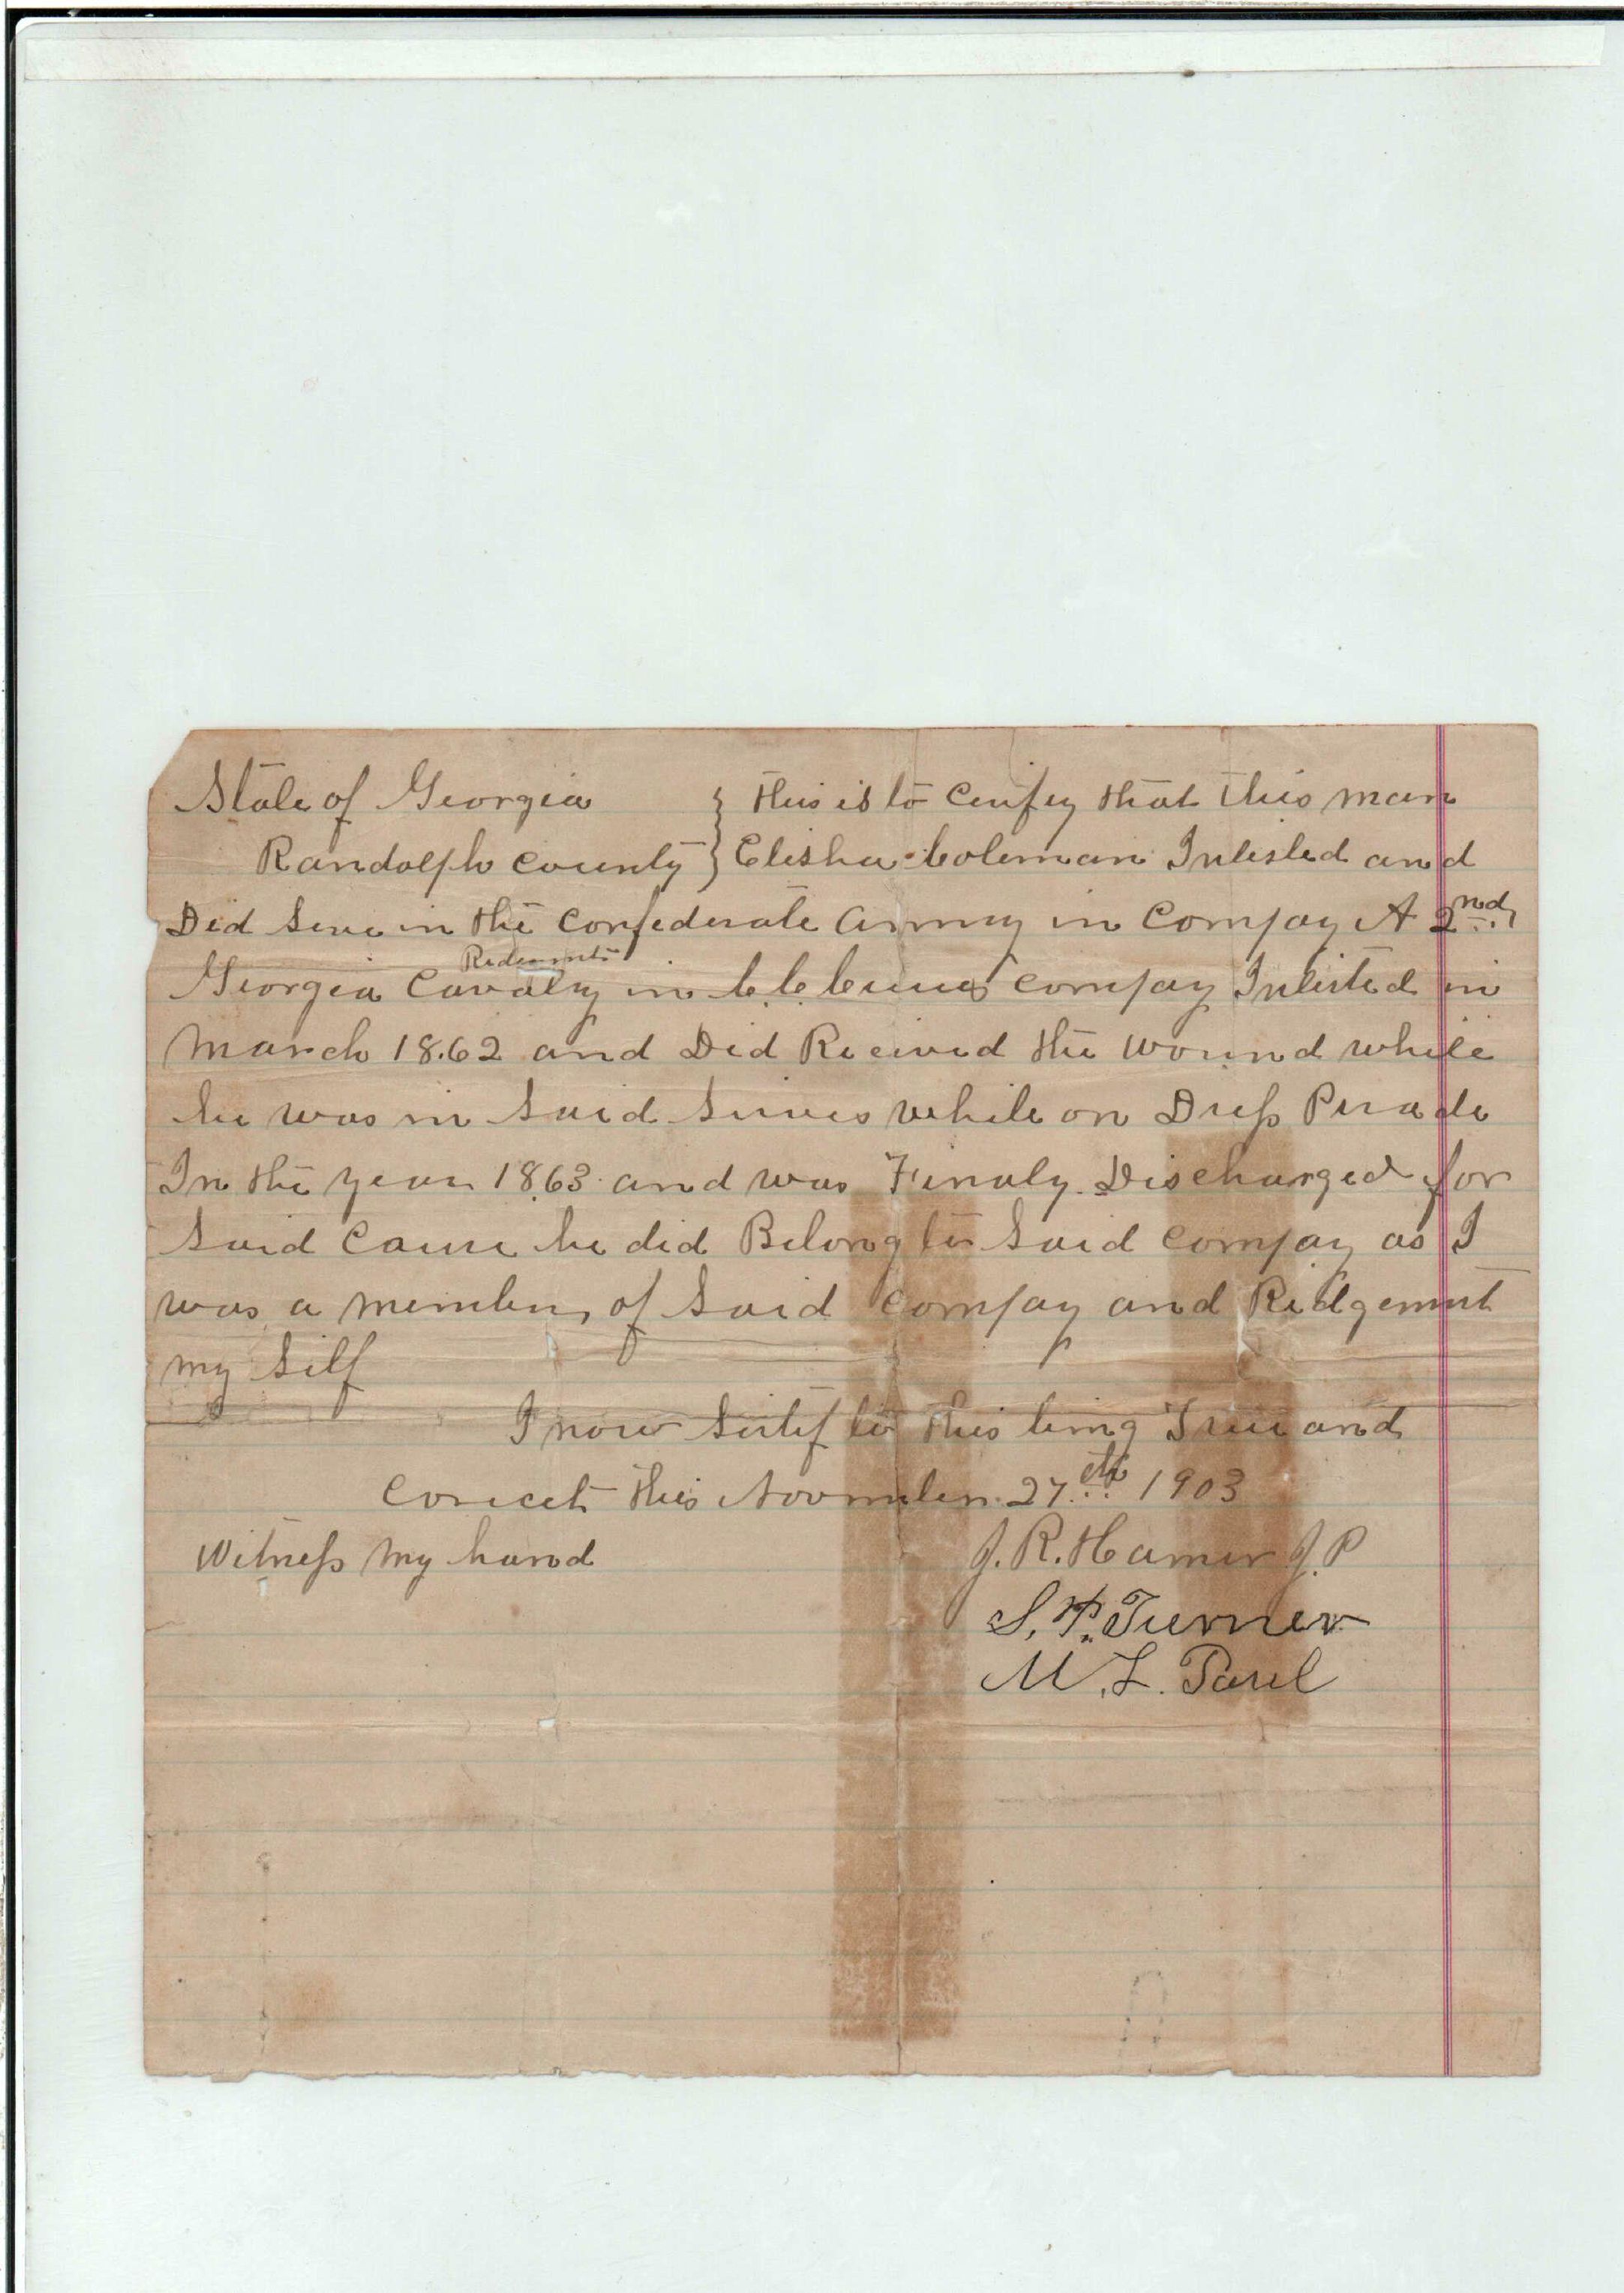 State of Georgia } this is to Cerifey that this man
Randolph County } Elisha Coleman Inlisted and
Did Serve in the Confederate Army in Compay A 2nd
Redgemnt
Georgia Cavalry in C. C. compay Inlisted in
March 1862 and Did Recived the wound while
he was in Said Servies while on Dress Perade
In the year 1863 and was Finaly Discharged for
Said Cause he did Belong to Said Compay as I
was a member of Said Compay and Ridgement
my Self
I now Sertif to this being True and
Coricct this Novmber 27th 1903
Witness my hand J. R. Hamer J.P
S. P. Turner
M. L.